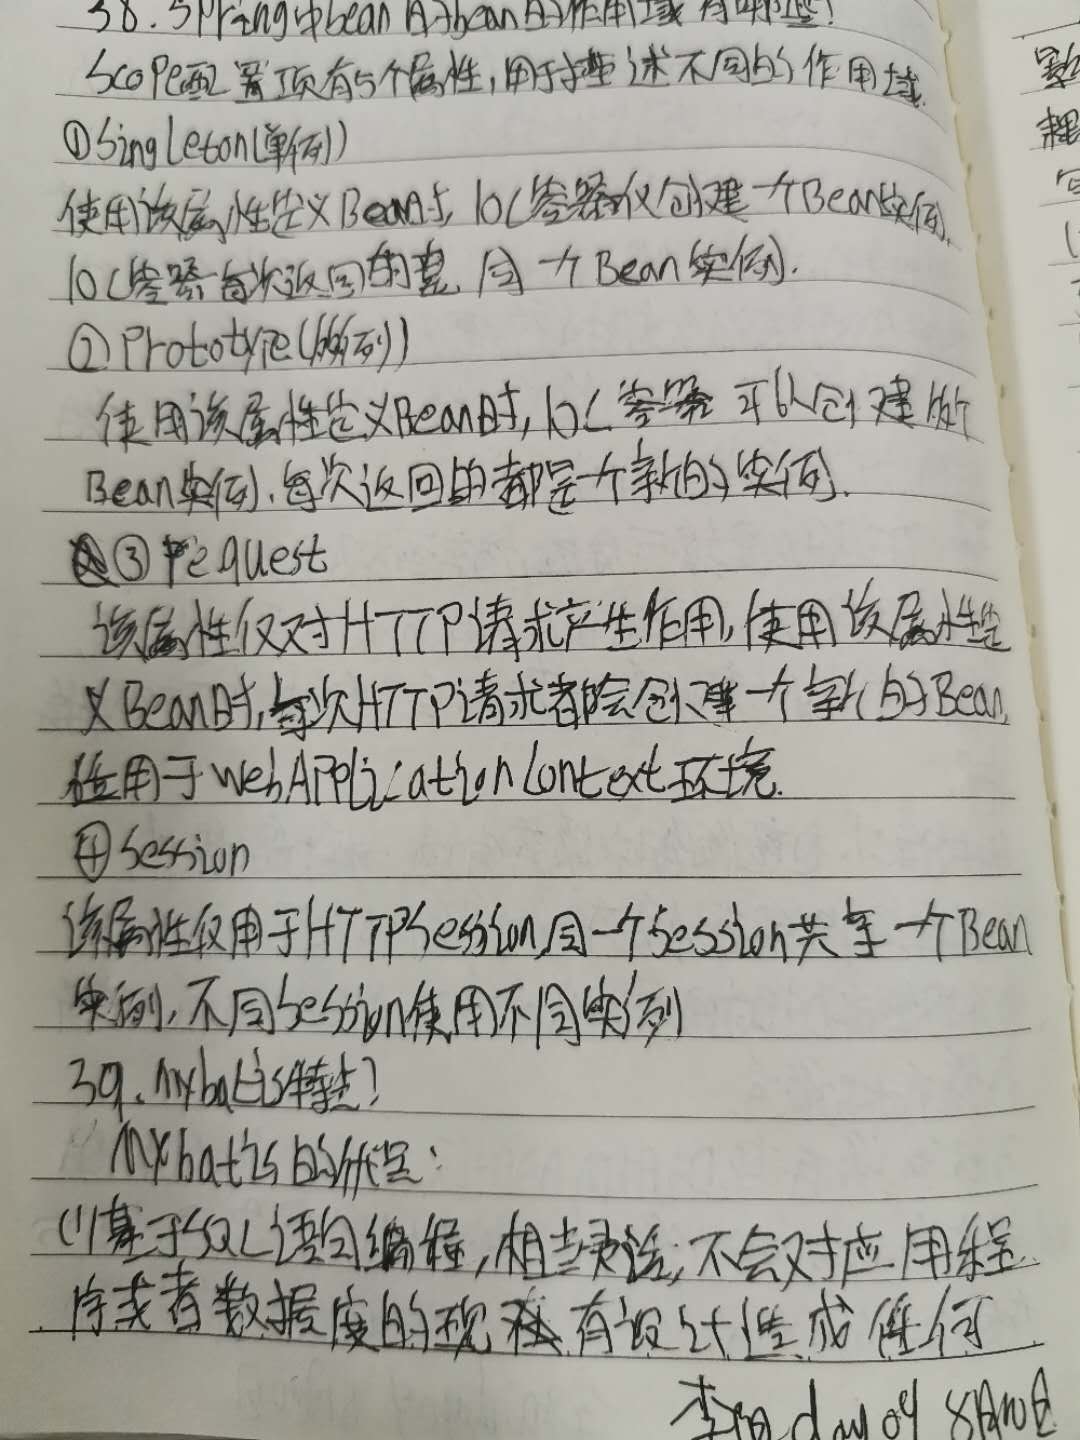 38.Spring中bean的bean的作用域有哪些?
Scope配置项有5个属性,用于描述不同的作用域.
①Singleton(单例)
使用该属性定义Bean时,IOC容器仅创建一个Bean实例,
IOC容器每次返回的是同一个Bean实例.
②Prototype(多例)
使用该属性定义Bean时,IOC容器可以创建多个
Bean实例,每次返回的都是一个新的实例.
③request
该属性仅对HTTP请求产生作用,使用该属性定
义Bean时,每次HTTP请求都会创建一个新的Bean,
适用于WebApplicationContext环境.
④Session
该属性仅用于HTTPSession,同一个Session共享一个Bean
实例,不同Session使用不同实例
39.Mybatis特点?
Mybatis的优点:
(1)基于SQL语句编程,相当灵活,不会对应用程
序或者数据库的现有设计造成任何
day04 8月10日